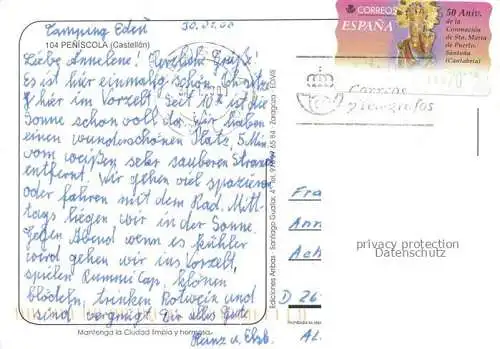 Camping Eden 30.01.00
104 PEÑISCOLA (Castellón)
Liebe Annelene! Herzliche Grüße!
Es ist hier einmalig schön. Ich sitze
hier im Vorzelt. Seit 10 h ist die
Sonne schon voll da. Wir haben
einen wunderschönen Platz, 5 Min.
vom weißen seher sauberen Strand
entfernt. Wir gehen viel spazieren
oder fahren mit dem Rad. Mitt-
tags liegen wir in der Sonne.
Gegen Abend wenn es kühler
wird gehen wir ins Vorzelt,
spielen Rummi Cap, klönen
blödeln, trinken Rotwein und
sind vergnügt. Dir alles Gute
Heinz u. Elsb.
Mantenga la Ciudad limpia y hermosa
Ediciones Arribas - Santiago Guallar, 4
Zaragoza - EDVIII
CORREOS
ESPAÑA
50 Aniv.
de la
Coronación
de Sta. María
de Puerto.
Santoña
(Cantabria)
Correos
y Telégrafos
Fra
Ann
Ach
D 26
AL
privacy protection
Datenschutz